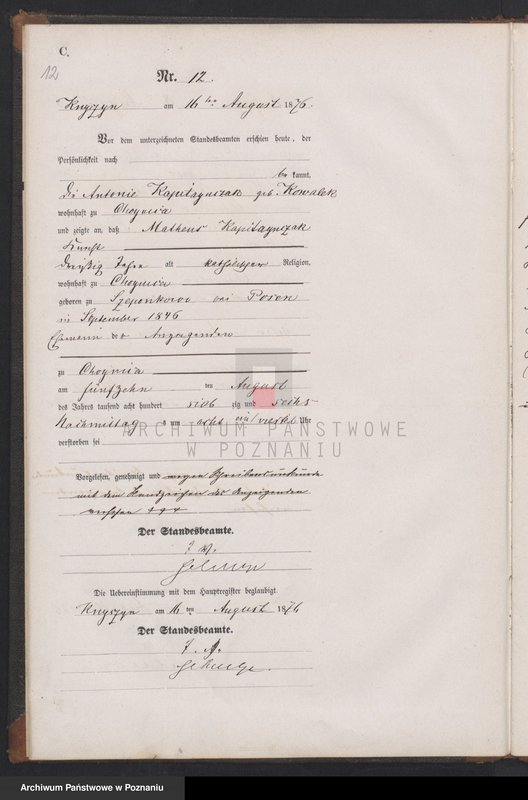 C.
12
Nr. 12.
Knyszyn am 16 ten August 1876.
Vor dem unterzeichneten Standesbeamten erschien heute, der
Persönlichkeit nach
be kannt,
Die Antonie Kapitaynczak geb. Kowalek
wohnhaft zu Choynica
und zeigte an, daß Matheus Kapitaynczak
dreißig Jahre alt katholischer Religion,
wohnhaft zu Choynica
geboren zu bei Posen
im September 1846
Ehemann der Anzeigenden
zu Choynica
am fünfzehn ten August
des Jahres tausend acht hundert sieb zig und sechs
Nachmittag s um acht ein viertel Uhr
verstorben sei
Vorgelesen, genehmigt und wegen Schreibensunkunde
mit dem Handzeichen des Anzeigenden
versehen + + +
Der Standesbeamte.
Die Uebereinstimmung mit dem Hauptregister beglaubigt.
Knyszyn am 16 ten August 1876
Der Standesbeamte.
ARCHIWUM PAŃSTWOWE
W POZNANIU
Archiwum Państwowe w Poznaniu